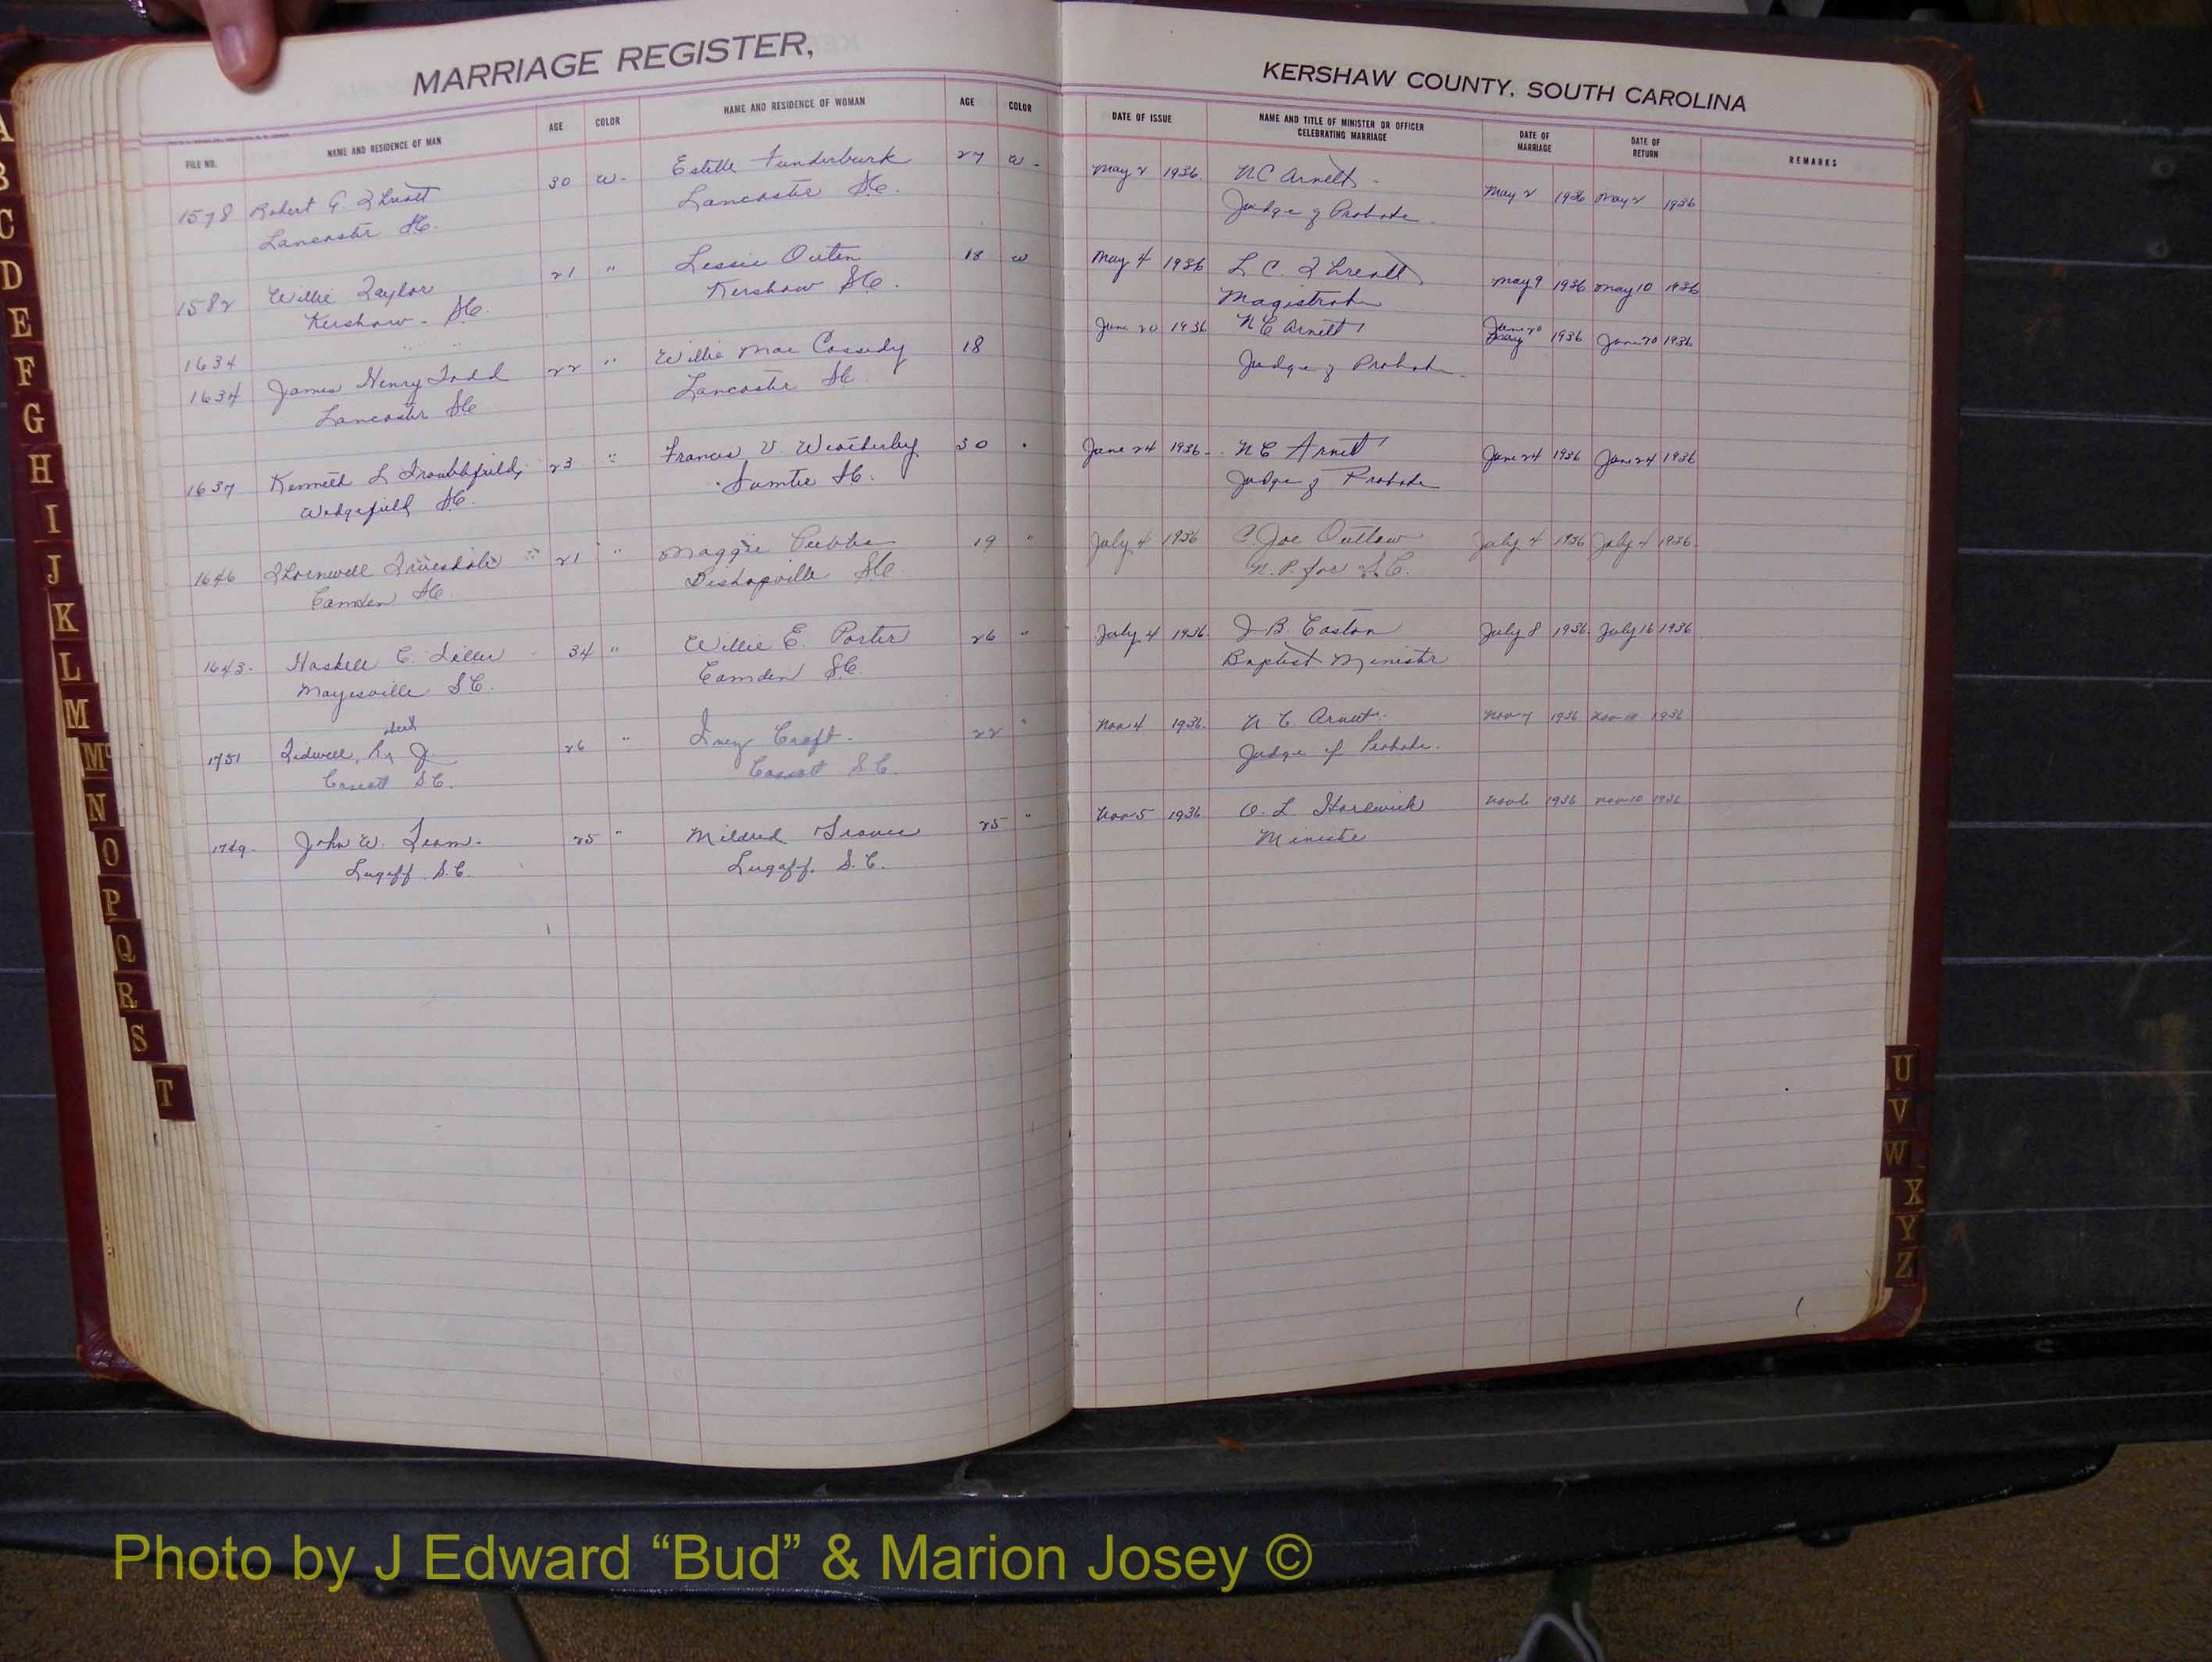 MARRIAGE REGISTER,
KERSHAW COUNTY, SOUTH CAROLINA
FILE NO. NAME AND RESIDENCE OF MAN AGE COLOR NAME AND RESIDENCE OF WOMAN AGE COLOR DATE OF ISSUE NAME AND TITLE OF MINISTER OR OFFICER CELEBRATING MARRIAGE DATE OF MARRIAGE DATE OF RETURN REMARKS
1578 Robert G. Threatt 30 W. Estelle Funderburk 27 W. May 2 1936 N C Arnett May 2 1936 May 2 1936
Lancaster SC. Lancaster SC. Judge of Probate
1582 Willie Taylor 21 " Lessie Outen 18 W May 4 1936 L. C. Threatt May 9 1936 May 10 1936
Kershaw - SC. Kershaw SC. Magistrate
1634
1634 James Henry Todd 22 " Willie Mae Cassidy 18 June 20 1936 N C Arnett June 20 1936 June 20 1936
Lancaster SC Lancaster SC Judge of Probate
1637 Kenneth L 23 " Frances V. Weatherley 30 June 24 1936 N C Arnett June 24 1936 June 24 1936
Wedgefield SC. Sumter SC. Judge of Probate
1646 Thornwell 21 " Maggie 19 " July 4 1936 C Joe Outlaw July 4 1936 July 4 1936
Camden SC. Bishopville SC. N. P. for S.C.
1643 Haskell C. 34 " Willie E. Porter 26 " July 4 1936 J B. Caston July 8 1936 July 16 1936
Mayesville S.C. Camden SC. Baptist Minister
1751 Tidwell, J. 26 " Inez Croft 22 " Nov 4 1936 N C Arnett Nov 7 1936 Nov 1936
Cassatt S.C. Cassatt S.C. Judge of Probate.
John W. Team 25 " Mildred 25 " Nov 5 1936 O. L. Nov 6 1936 Nov 10 1936
Lugoff. S.C. Lugoff. S.C. Minister
A
B
C
D
E
F
G
H
I
J
K
L
M
Mc
N
O
P
Q
R
S
T
U
V
W
X
Y
Z
Photo by J Edward “Bud” & Marion Josey ©